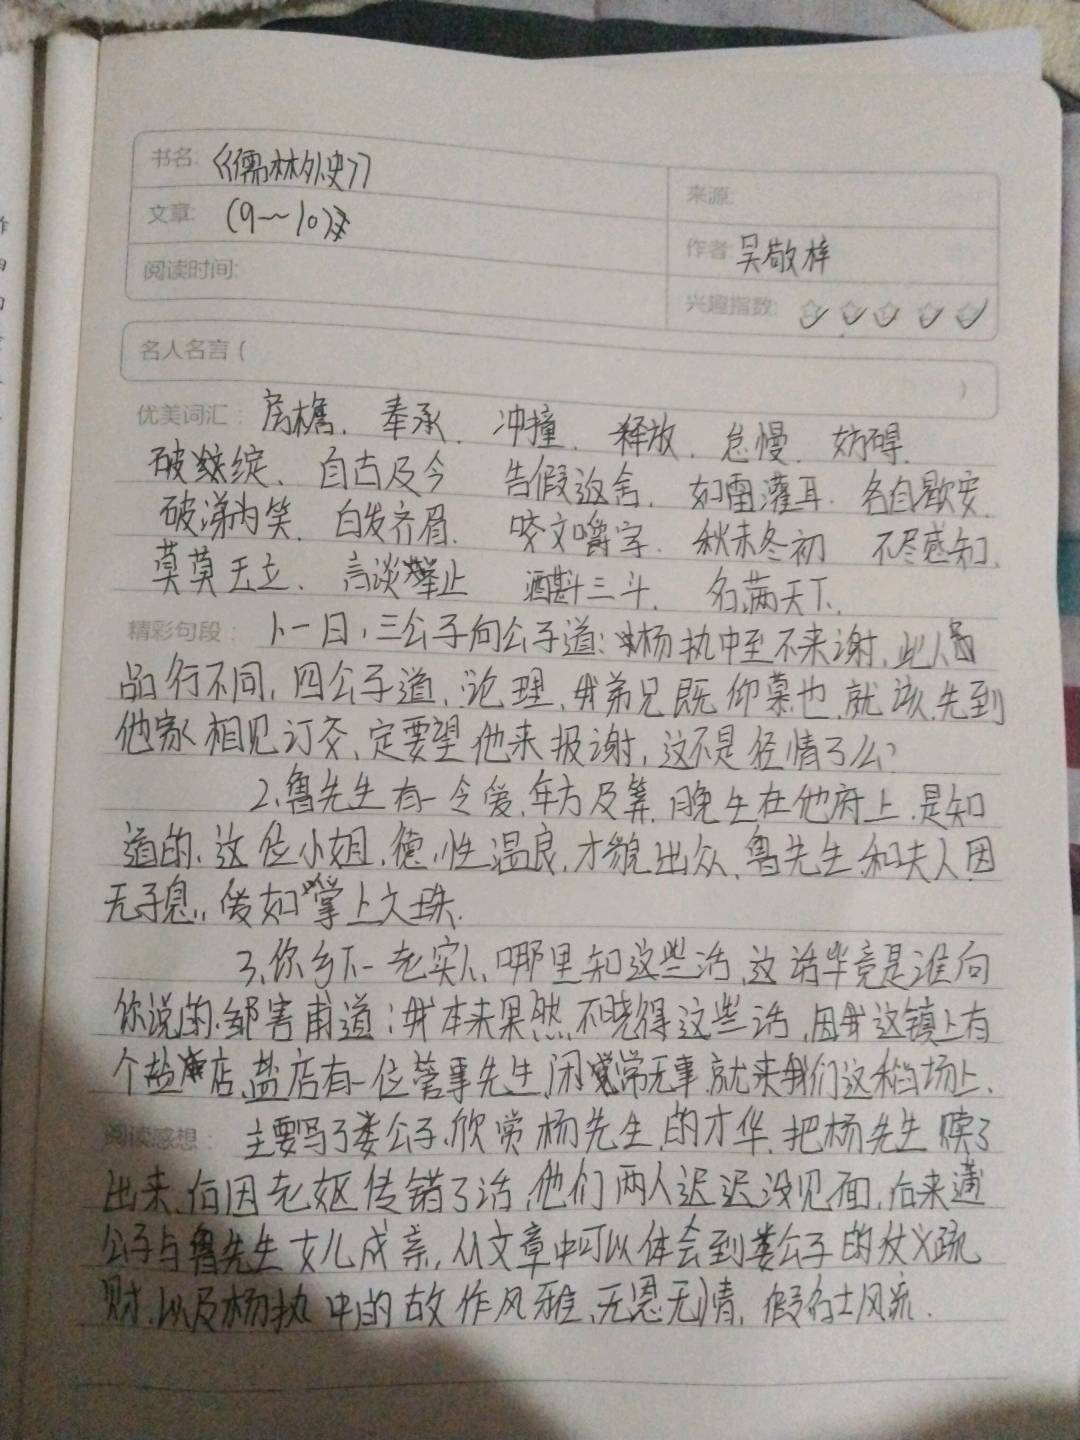 书名: 《儒林外史》
来源:
文章: (9～10)
作者: 吴敬梓
阅读时间:
兴趣指数:
名人名言 ( )
优美词汇: 房檐、奉承、冲撞、释放、怠慢、妨碍、
破绽、自古及今 告假返舍、如雷灌耳、各自歇安、
破涕为笑、白发齐眉、咬文嚼字、秋末冬初 不尽感知、
莫莫无立、高谈举止 酒斟三斗、名满天下、
精彩句段: 1、一日,三公子向公子道:杨执中至不来谢,此人
品行不同,四公子道,论理,我弟兄既仰慕他就该先到
他家相见订交,定要望他来报谢,这不是径情了么?
2、鲁先生有一令爱,年方及笄,晚生在他府上,是知
道的,这位小姐,德性温良,才貌出众,鲁先生和夫人因
无子息,爱如掌上文珠.
3、你乡下一老实人,哪里知这些话,这话毕竟是谁向
你说的,邹害甫道:我本来果然不晓得这些话,因我这镇上有
个盐店,盐店有一位管事先生,闲常无事就来我们这稻场上、
阅读感想: 主要写了娄公子欣赏杨先生的才华,把杨先生赎了
出来,但因老妪传错了话,他们两人迟迟没见面,后来蘧
公子与鲁先生女儿成亲,从文章中可以体会到娄公子的仗义疏
财,以及杨执中的故作风雅,无恩无情,假名士风流.